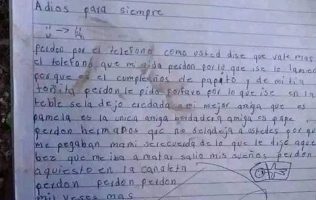 Adios para siempre
perdon por el telefono como usted dise que vale mas
el telefono que mi vida perdon por lo que ise le lamento
porque es el cumpleaños de papito y de mi tia
toñita perdon le pido porfabor por lo que ise en la
teble se la dejo credada a mi mejor amiga que es
pamela es la unica amiga berdadera amiga es papa
perdon hermanos que no boladeja a ustedes por que
me pegaban mami se recuerda de lo que le dije aque
bez que me iba a matar salio mis sueños perdon
aqui esto en la canaleta
perdon perdon perdon
mil veses mas